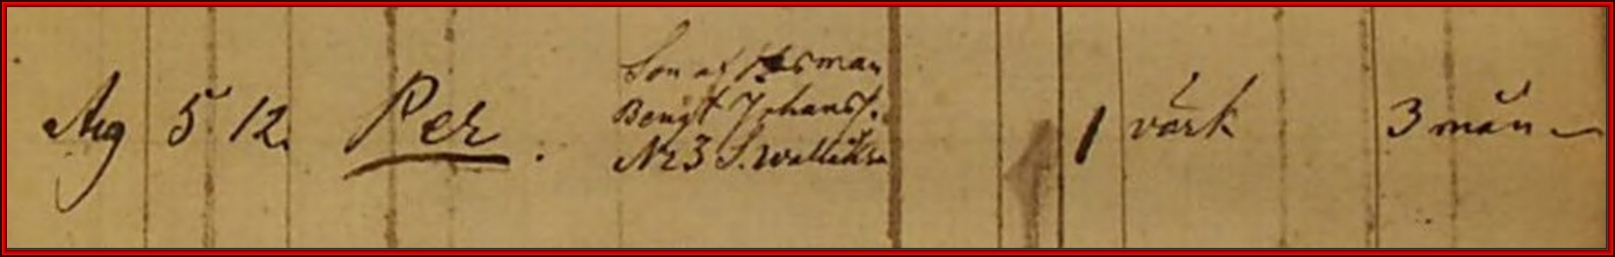 Aug 5 12. Per. Son af Husman
Bengt Johanss.
No 3 S. 1 värk 3 mån